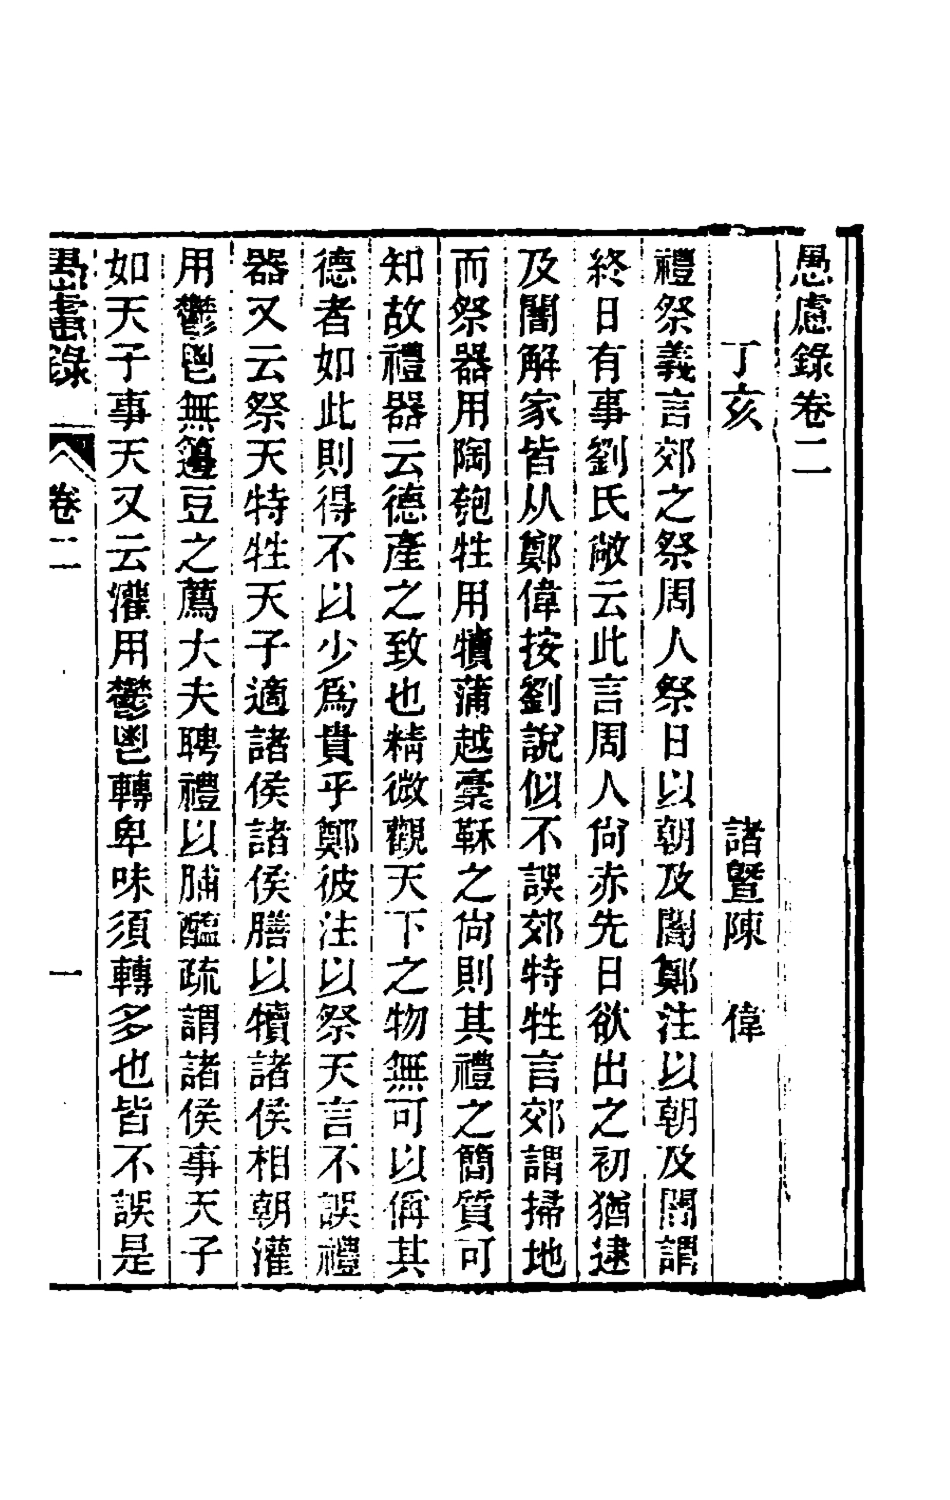 愚慮錄卷二
丁亥 諸曁陳 偉
禮祭義言郊之祭周人祭日以朝及闇鄭注以朝及闇謂
終日有事劉氏敞云此言周人尙赤先日欲出之初猶逮
及闇解家皆从鄭偉按劉說似不誤郊特牲言郊謂掃地
而祭器用陶匏牲用犢蒲越槀鞂之尙則其禮之簡質可
知故禮器云德產之致也精微觀天下之物無可以偁其
德者如此則得不以少爲貴乎鄭彼注以祭天言不誤禮
器又云祭天特牲天子適諸侯諸侯膳以犢諸侯相朝灌
用鬱鬯無籩豆之薦大夫聘禮以脯醢疏謂諸侯事天子
如天子事天又云灌用鬱鬯轉卑味須轉多也皆不誤是
愚慮錄 卷二 一